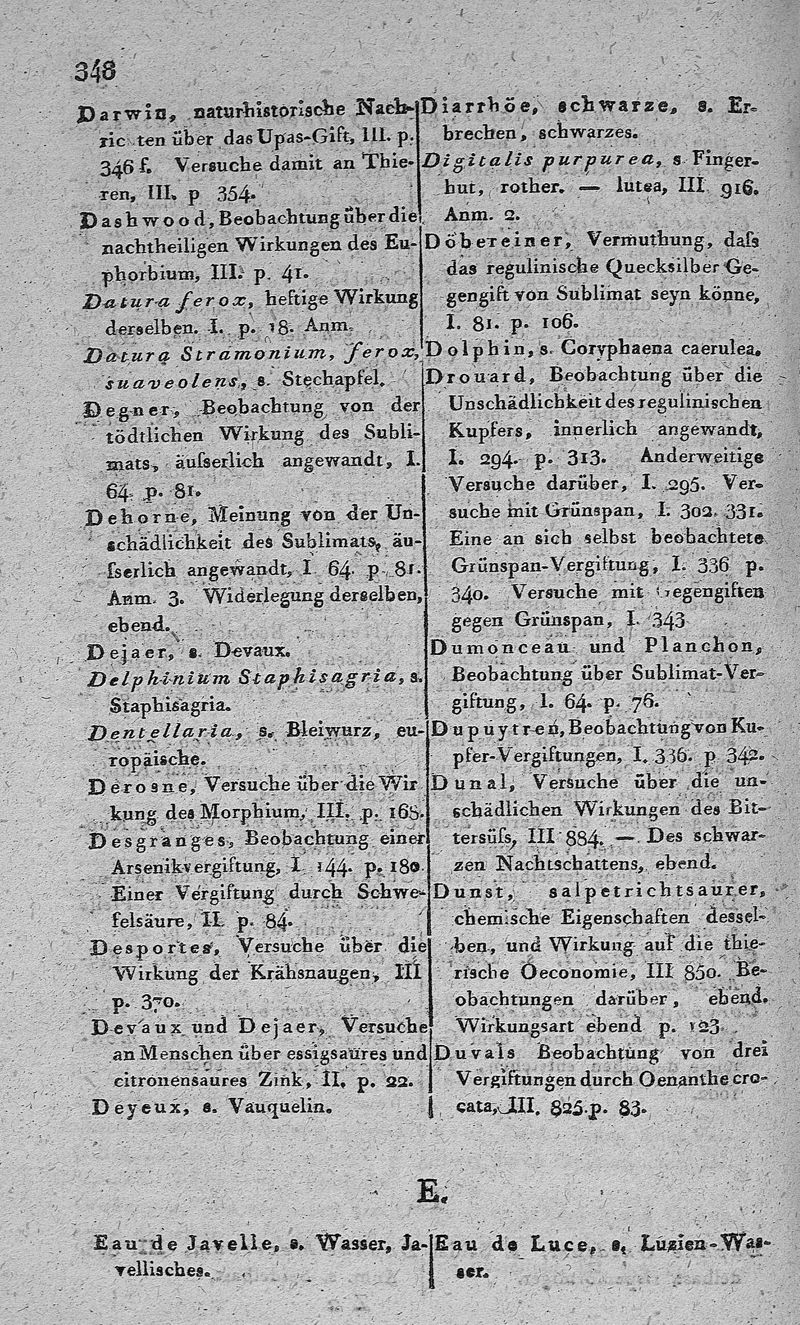 348
Darwin, naturhistorische Nach-
ric ten über das Upas-Gift, III. p.
346 f. Versuche damit an Thie-
ren, III. p 354.
Dashwood, Beobachtung über die
nachtheiligen Wirkungen des Eu-
phorbium, III. p. 41.
Datura ferox, heftige Wirkung
derselben. I. p. 18. Anm.
Datura Stramonium, ferox,
suaveolens, s. Stechapfel.
Degner, Beobachtung von der
tödtlichen Wirkung des Subli-
mats, äuſserlich angewandt, I.
64. p. 81.
Dehorne, Meinung von der Un-
schädlichkeit des Sublimats, äu-
ſserlich angewandt, I 64. p. 81.
Anm. 3. Widerlegung derselben,
ebend.
Dejaer, s. Devaux.
Delphinium Staphisagria, s.
Staphisagria.
Dentellaria, s. Bleiwurz, eu-
ropäische.
Derosne, Versuche über die Wir
kung des Morphium, III. p. 168.
Desgranges, Beobachtung einer
Arsenikvergiftung, I 144. p. 180.
Einer Vergiftung durch Schwe-
felsäure, II. p. 84.
Desportes, Versuche über die
Wirkung der Krähsnaugen, III
p. 370.
Devaux und Dejaer, Versuche
an Menschen über essigsaures und
citronensaures Zink, II. p. 22.
Deyeux, s. Vauquelin.
Diarrhöe, schwarze, s. Er-
brechen, schwarzes.
Digitalis purpurea, s Finger-
hut, rother. — lutea, III 916.
Anm. 2.
Döbereiner, Vermuthung, daſs
das regulinische Quecksilber Ge-
gengift von Sublimat seyn könne,
I. 81. p. 106.
Dolphin, s. Coryphaena caerulea.
Drouard, Beobachtung über die
Unschädlichkeit des regulinischen
Kupfers, innerlich angewandt,
I. 294. p. 313. Anderweitige
Versuche darüber, I. 295. Ver-
suche mit Grünspan, I. 302. 331.
Eine an sich selbst beobachtete
Grünspan-Vergiftung, I. 336 p.
340. Versuche mit Gegengiften
gegen Grünspan, I. 343
Dumonceau und Planchon,
Beobachtung über Sublimat-Ver-
giftung, I. 64. p. 76.
Dupuytren, Beobachtung von Ku-
pfer-Vergiftungen, I. 336. p 342.
Dunal, Versuche über die un-
schädlichen Wirkungen des Bit-
tersüſs, III 884. — Des schwar-
zen Nachtschattens, ebend.
Dunst, salpetrichtsaurer,
chemische Eigenschaften dessel-
ben, und Wirkung auf die thie-
rische Oeconomie, III 850. Be-
obachtungen darüber, ebend.
Wirkungsart ebend p. 123.
Duvals Beobachtung von drei
Vergiftungen durch Oenanthe cro-
cata, III. 825. p. 83.
E.
Eau de Javelle, s. Wasser, Ja-
vellisches.
Eau de Luce, s. Luzien-Was-
ser.